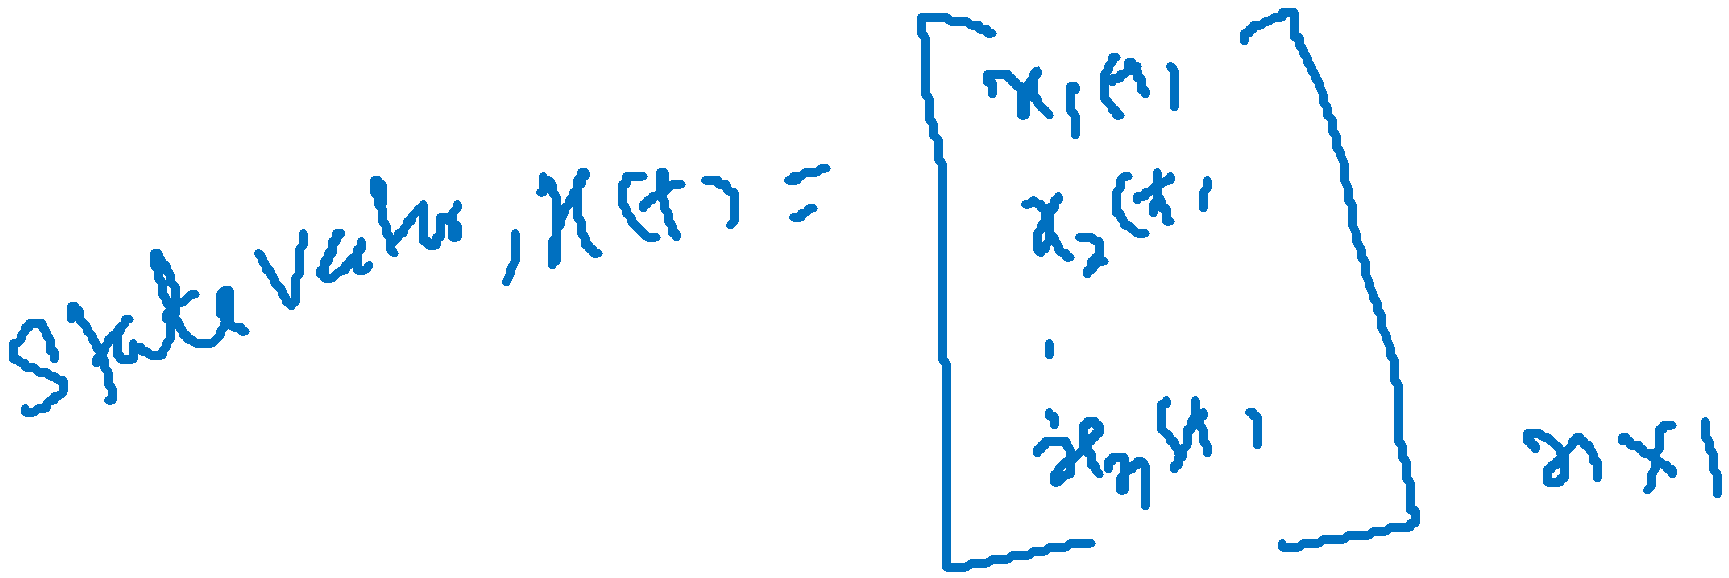 State Vector, X(t) =
x₁(t)
x₂(t)
.
.
xₙ(t)
n×1